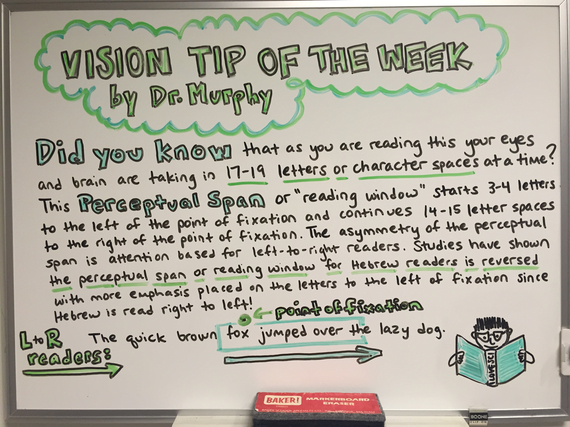 VISION TIP OF THE WEEK
by Dr. Murphy
Did you know that as you are reading this your eyes
and brain are taking in 17-19 letters or character spaces at a time?
This Perceptual Span or "reading window" starts 3-4 letters
to the left of the point of fixation and continues 14-15 letter spaces
to the right of the point of fixation. The asymmetry of the perceptual
span is attention based for left-to-right readers. Studies have shown
the perceptual span or reading window for Hebrew readers is reversed
with more emphasis placed on the letters to the left of fixation since
Hebrew is read right to left!
point of fixation
L to R
readers:
The quick brown fox jumped over the lazy dog.
BAKER! MARKERBOARD
ERASER
BOONE